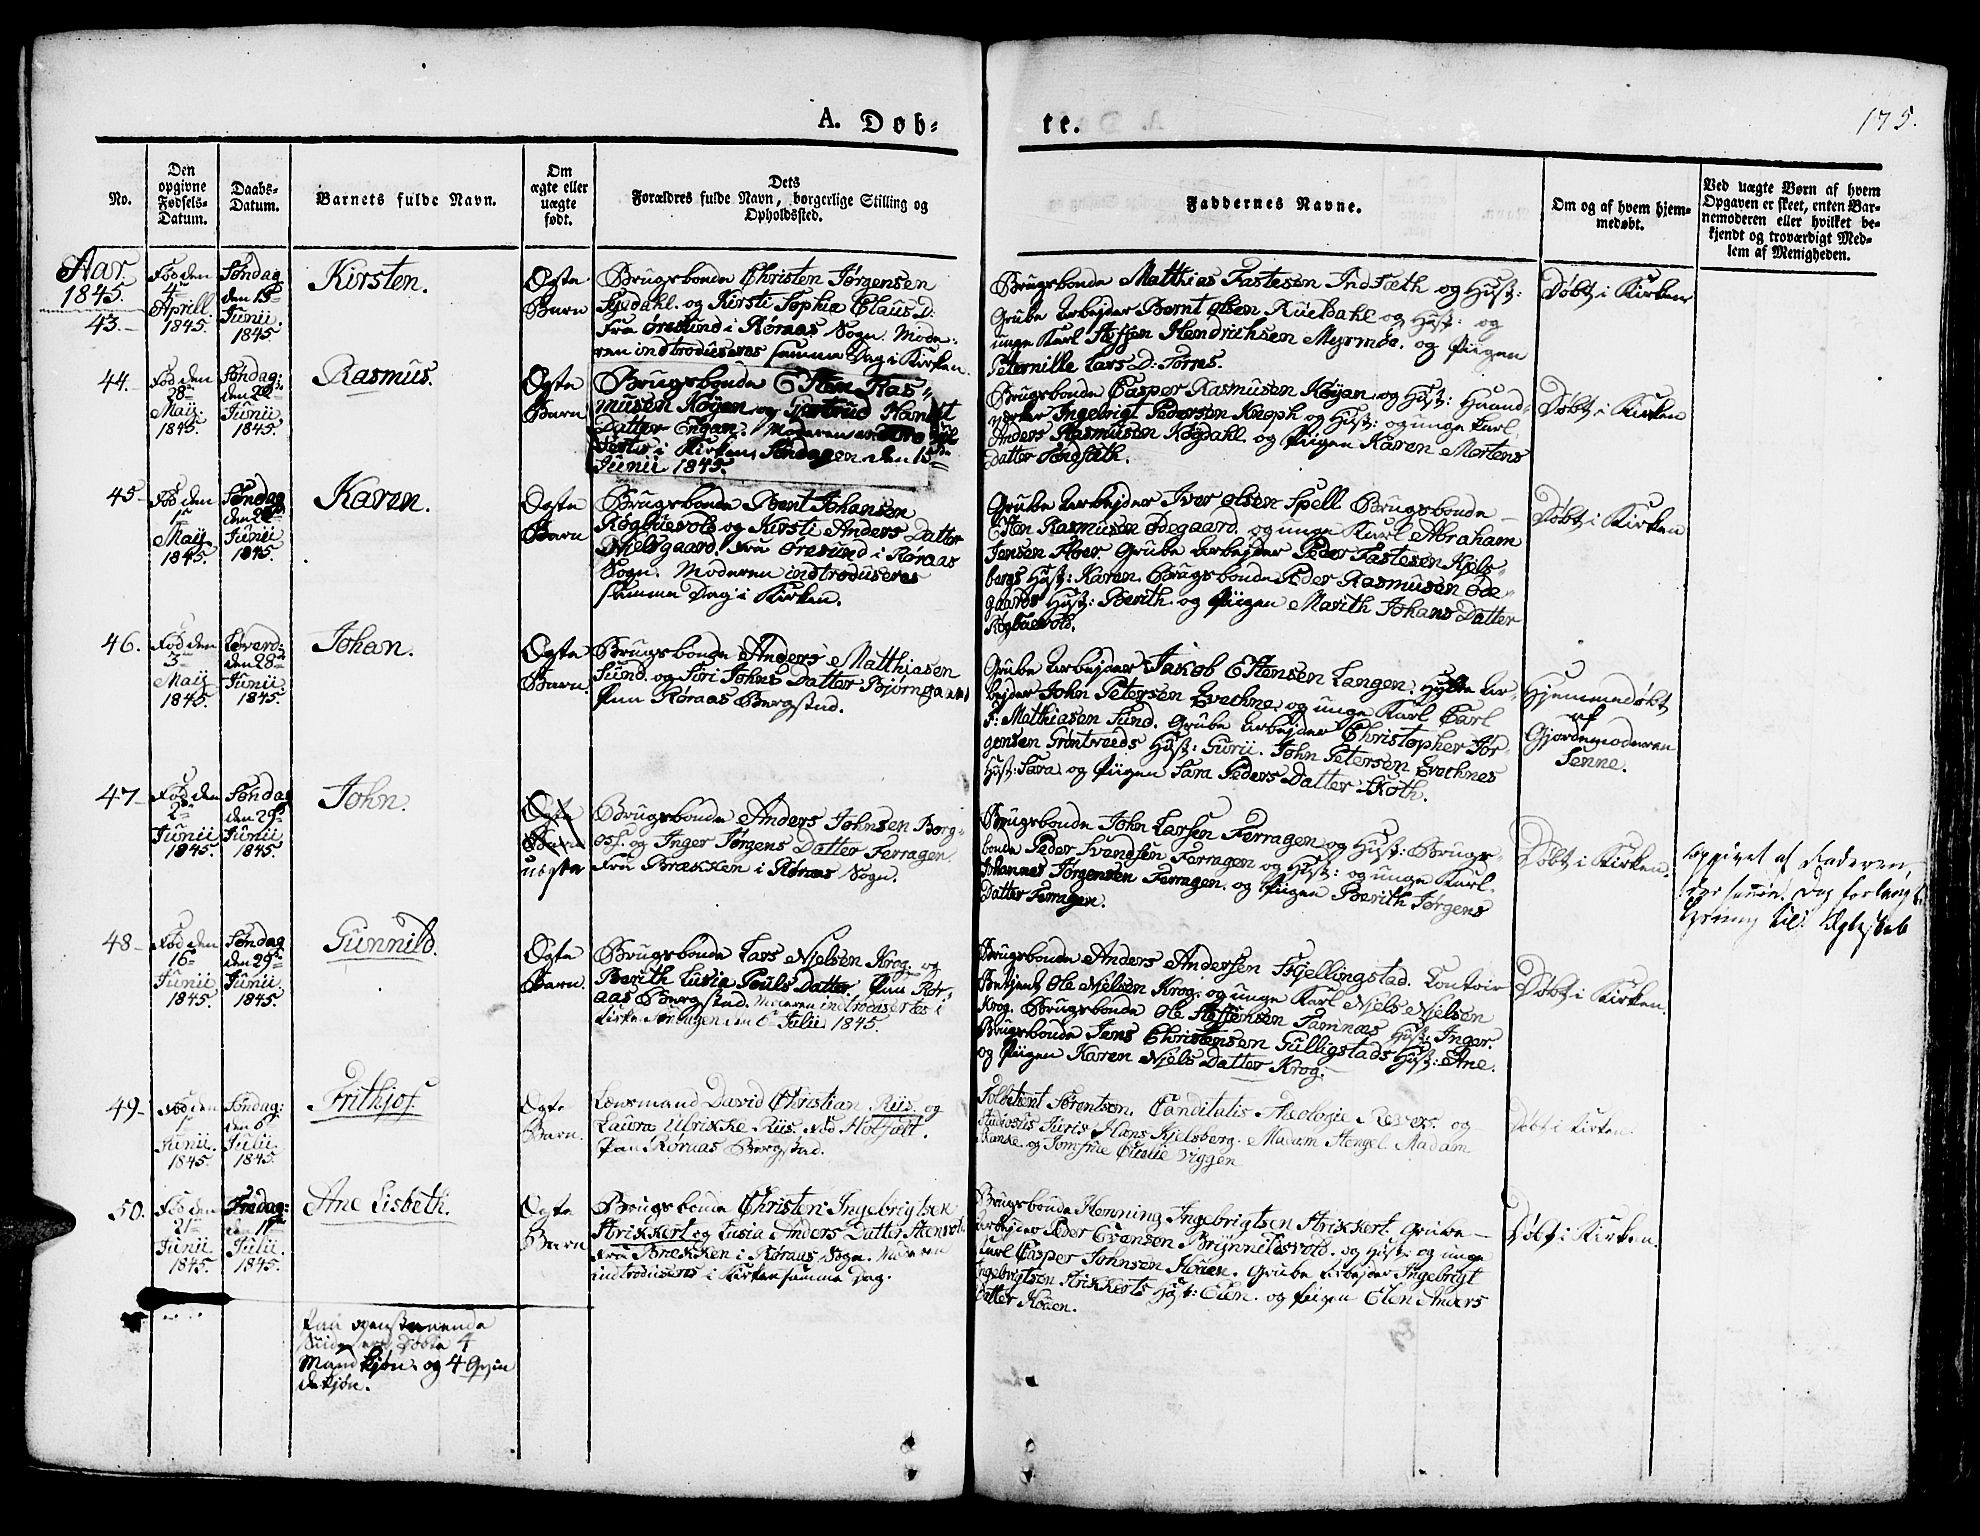 A. Døb-
te.
175.
No.
Den opgivne Fødsels-Datum.
Daabs-Datum.
Barnets fulde Navn.
Om ægte eller uægte født.
Dets Forældres fulde Navn, borgerlige Stilling og Opholdsted.
Faddernes Navne.
Om og af hvem hjem-
medøbt.
Ved uægte Børn af hvem
Opgaven er skeet, enten Bar-
nemoderen eller hvilket be-
kjendt og troværdigt Med-
lem af Menigheden.
Aar
1845.
43.
Fød den
4de
Aprill
1845.
Søndag
den 15de
Junii
1845.
Kirsten.
Ægte
Barn
Brugsbonde Christen Jørgensen
og Kirsti Sophia Claus D:
fra Øresund i Røraas Sogn. Mode-
ren indtroduseres samme Dag i Kirken.
Brugsbonde Matthias Fastesen Indsæth og Hust:
Grube Arbejder Bernt Olsen Rueldahl og Hust: og
unge Karl Steffen Hendrichsen Myrmoa. og Piigen
Peternille Lars D: Torres.
Døbt i Kirken
44.
Fød den
28de
Maij.
1845.
Søndag:
den 22de
Junii
1845.
Rasmus.
Ægte
Barn
Brugsbonde Esten Ras-
musen Køyan og Gjertrud
Datter Engan. Moderen
i Kirken Søndagen den 15de
Junii 1845.
Brugsbonde Casper Rasmusen Køyan og Hust: Haand-
verker Ingebrigt Pedersen Knoph og Hust: og unge Karl
Anders Rasmusen Kogdahl. og Piigen Karen Mortens
Datter Sundsæth.
Døbt i Kirken
45
Fød den
1ste
Maij
1845.
Søndag
den 22de
Junii
1845.
Karen.
Ægte
Barn
Brugsbonde Bent Johansen
Røgbuevold og Kirsti Anders Datter
Nielsgaard. fra Øresund i Røraas
Sogn. Moderen indtroduseres
samme Dag i Kirken.
Grube Arbejder Iver Olsen Spell Brugsbonde
Esten Rasmusen Ødegaard. og unge Karl Abraham
Jensen Floer Grube Arbejder Peder Fastesen Kjels-
bergs Hust: Karen. Brugsbonde Peder Rasmusen Øde-
gaards Hust: Berith. og Piigen Marith Johans Datter
Røgbuevold.
Døbt i Kirken
46.
Fød den
3de
Maij
1845.
Løverd:
den 28de
Junii
1845.
Johan.
Ægte
Barn.
Brugsbonde Anders Matthiasen
Sund. og Siri Johns Datter Bjørngaard
Paa Røraas Bergstad.
Grube Arbejder Jakob Estensen Langen. Hytte Ar-
bejder John Petersen Evethne. og unge Karl Carl
F: Matthiasen Sund. Grube Arbejder Christopher Jør
gensen Grøntveeds Hust: Gurii. John Petersen Evethnes
Hust: Sara. og Piigen Sara Peders Datter Skoth.
Hjemmedøbt
af
Gjordemoderen
Senne.
47
Fød den
2de
Junii
1845.
Søndag
den 29de
Junii
1845.
John.
Ægte
Barn
uægte
Brugsbonde Anders Johnsen Borg-
os. og Inger Jørgens Datter Ferragen.
fra Brækken i Røraas Sogn.
Brugsbonde John Larsen Ferragen og Hust: Brugs-
bonde Peder Svendsen Ferragen og Hust: og unge Karl
Johannes Jørgensen Ferragen. og Piigen Berith Jørgens
Datter Ferragen.
Døbt i Kirken.
opgivet af Faderen,
Dag forlangte
Lysning til Ægteskab
48
Fød den
16de
Junii
1845.
Søndag
den 29de
Junii
1845.
Gunnild.
Ægte
Barn.
Brugsbonde Lars Nielsen Krog. og
Berith Lusia Pouls Datter Paa Rør-
aas Bergstad. Moderen indtrodusertes i
Kirken Søndagen den 6te Julii 1845.
Brugsbonde Anders Andersen Fjellingstad. Contoir
Betjent Ole Nielsen Krog. og unge Karl Niels Nielsen
Krog. Brugsbonde Ole Steffensen Tamnæs Hust: Inger.
Brugsbonde Jens Christensen Gulligstads Hust: Ane.
og Piigen Karen Niels Datter Krog.
Døbt i Kirken.
49
Fød den
1ste
Junii.
1845.
Søndag:
den 6te
Julii.
1845.
Frithjof.
Ægte
Barn.
Lensmand David Christian Riis. og
Laura Ulrikke Riis. fød Holfeldt.
Paa Røraas Bergstad.
Sørentsen. Canditatis Theologie og
Studiosus Juris Hans Kjelsberg. Madam Stengel. Madam
og Jomfrue Viggen
Døbt i Kirken.
50.
Fød den
21de
Junii
1845.
Fredag:
den 11te
Julii.
1845.
Ane Lisbeth.
Ægte
Barn
Brugsbonde Christen Ingebrigtsen
Strikkert og Lusia Anders Datter Stenvold
fra Brækken i Røraas Sogn. Moderen
indtroduseres i Kirken samme Dag.
Brugsbonde Henning Ingebrigtsen Strikkert. Grube-
Arbejder Peder Evensen Brynnildsvold. og Hust: og unge
Karl Casper Johnsen Kouen. Grube Arbejder Ingebrigt
Ingebrigtsen Strikkerts Hust: Elen. og Piigen Elen Anders
Datter Kouen.
Døbt i Kirken.
Paa ovenstaaende
Side ere Døbte 4
Mandkjøn. og 4 Qvin
dekjøn.